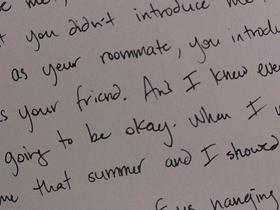 e me,
t you didn't introduce me
as your roommate, you introdu
s your friend. And I knew eve
going to be okay. When I w
me that summer and I showed
s hanging